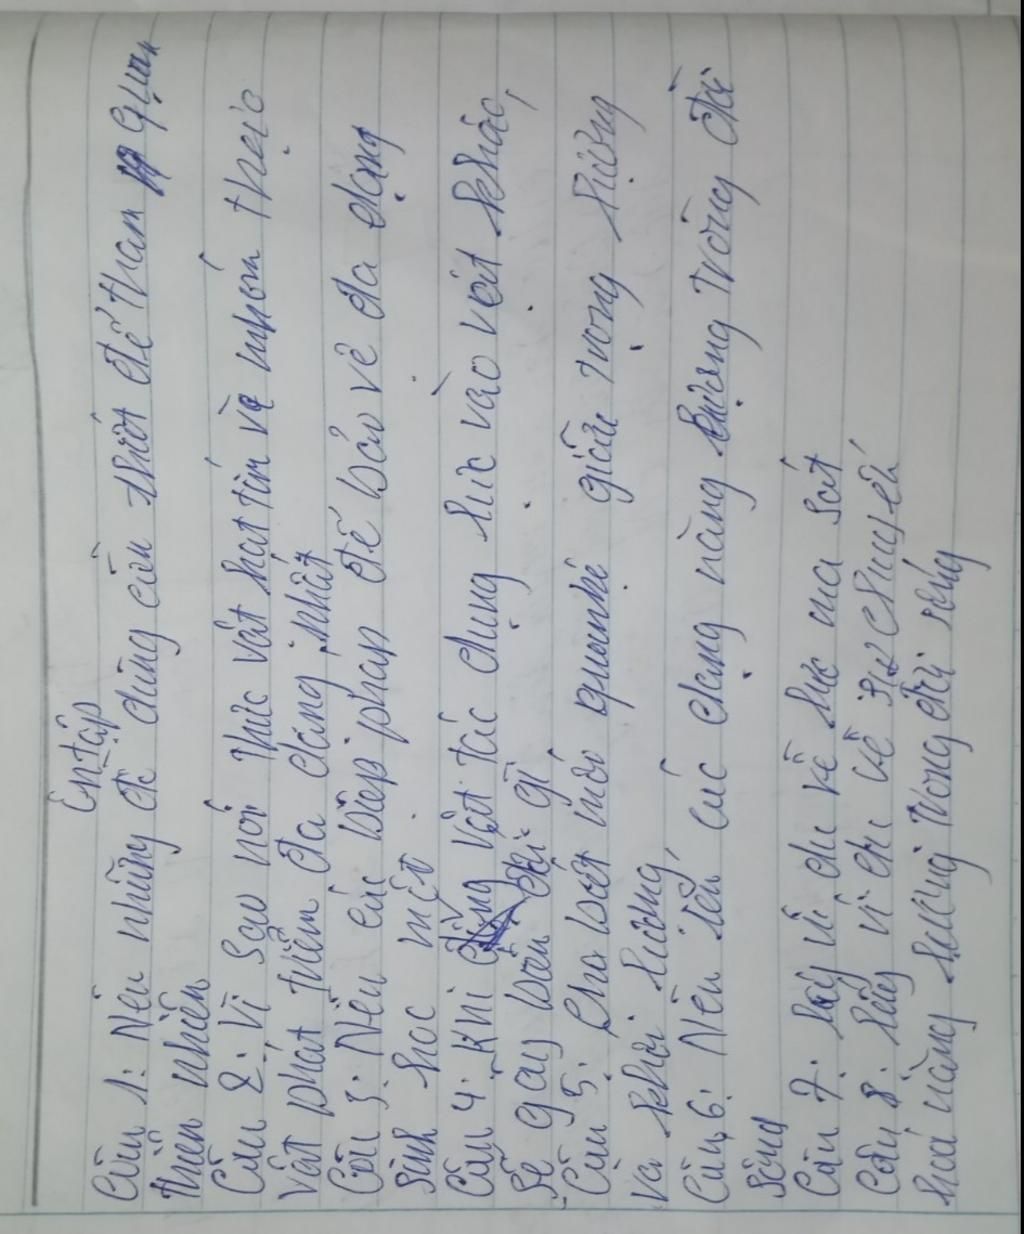 Ôn tập
Câu 1: Nêu những đồ dùng cần thiết để tham quan
thiên nhiên
Câu 2: Vì sao nói thực vật hạt tín và nhóm thực
vật phát triển đa dạng nhất
Câu 3: Nêu các biệp pháp để bảo vệ đa dạng
sinh học
Câu 4: Khi vật tác dụng lực vào vật khác,
sẽ gây biến đổi gì
Câu 5: Cho biết mối quanhệ giữa trọng lượng
và khối lượng
Câu 6: Nêu tên các dạng năng lượng trong đời
sống
Câu 7: lấy ví dụ về lực ma sát
Câu 8: lấy ví dụ về sự chuyển
hoá năng lượng trong đời sống